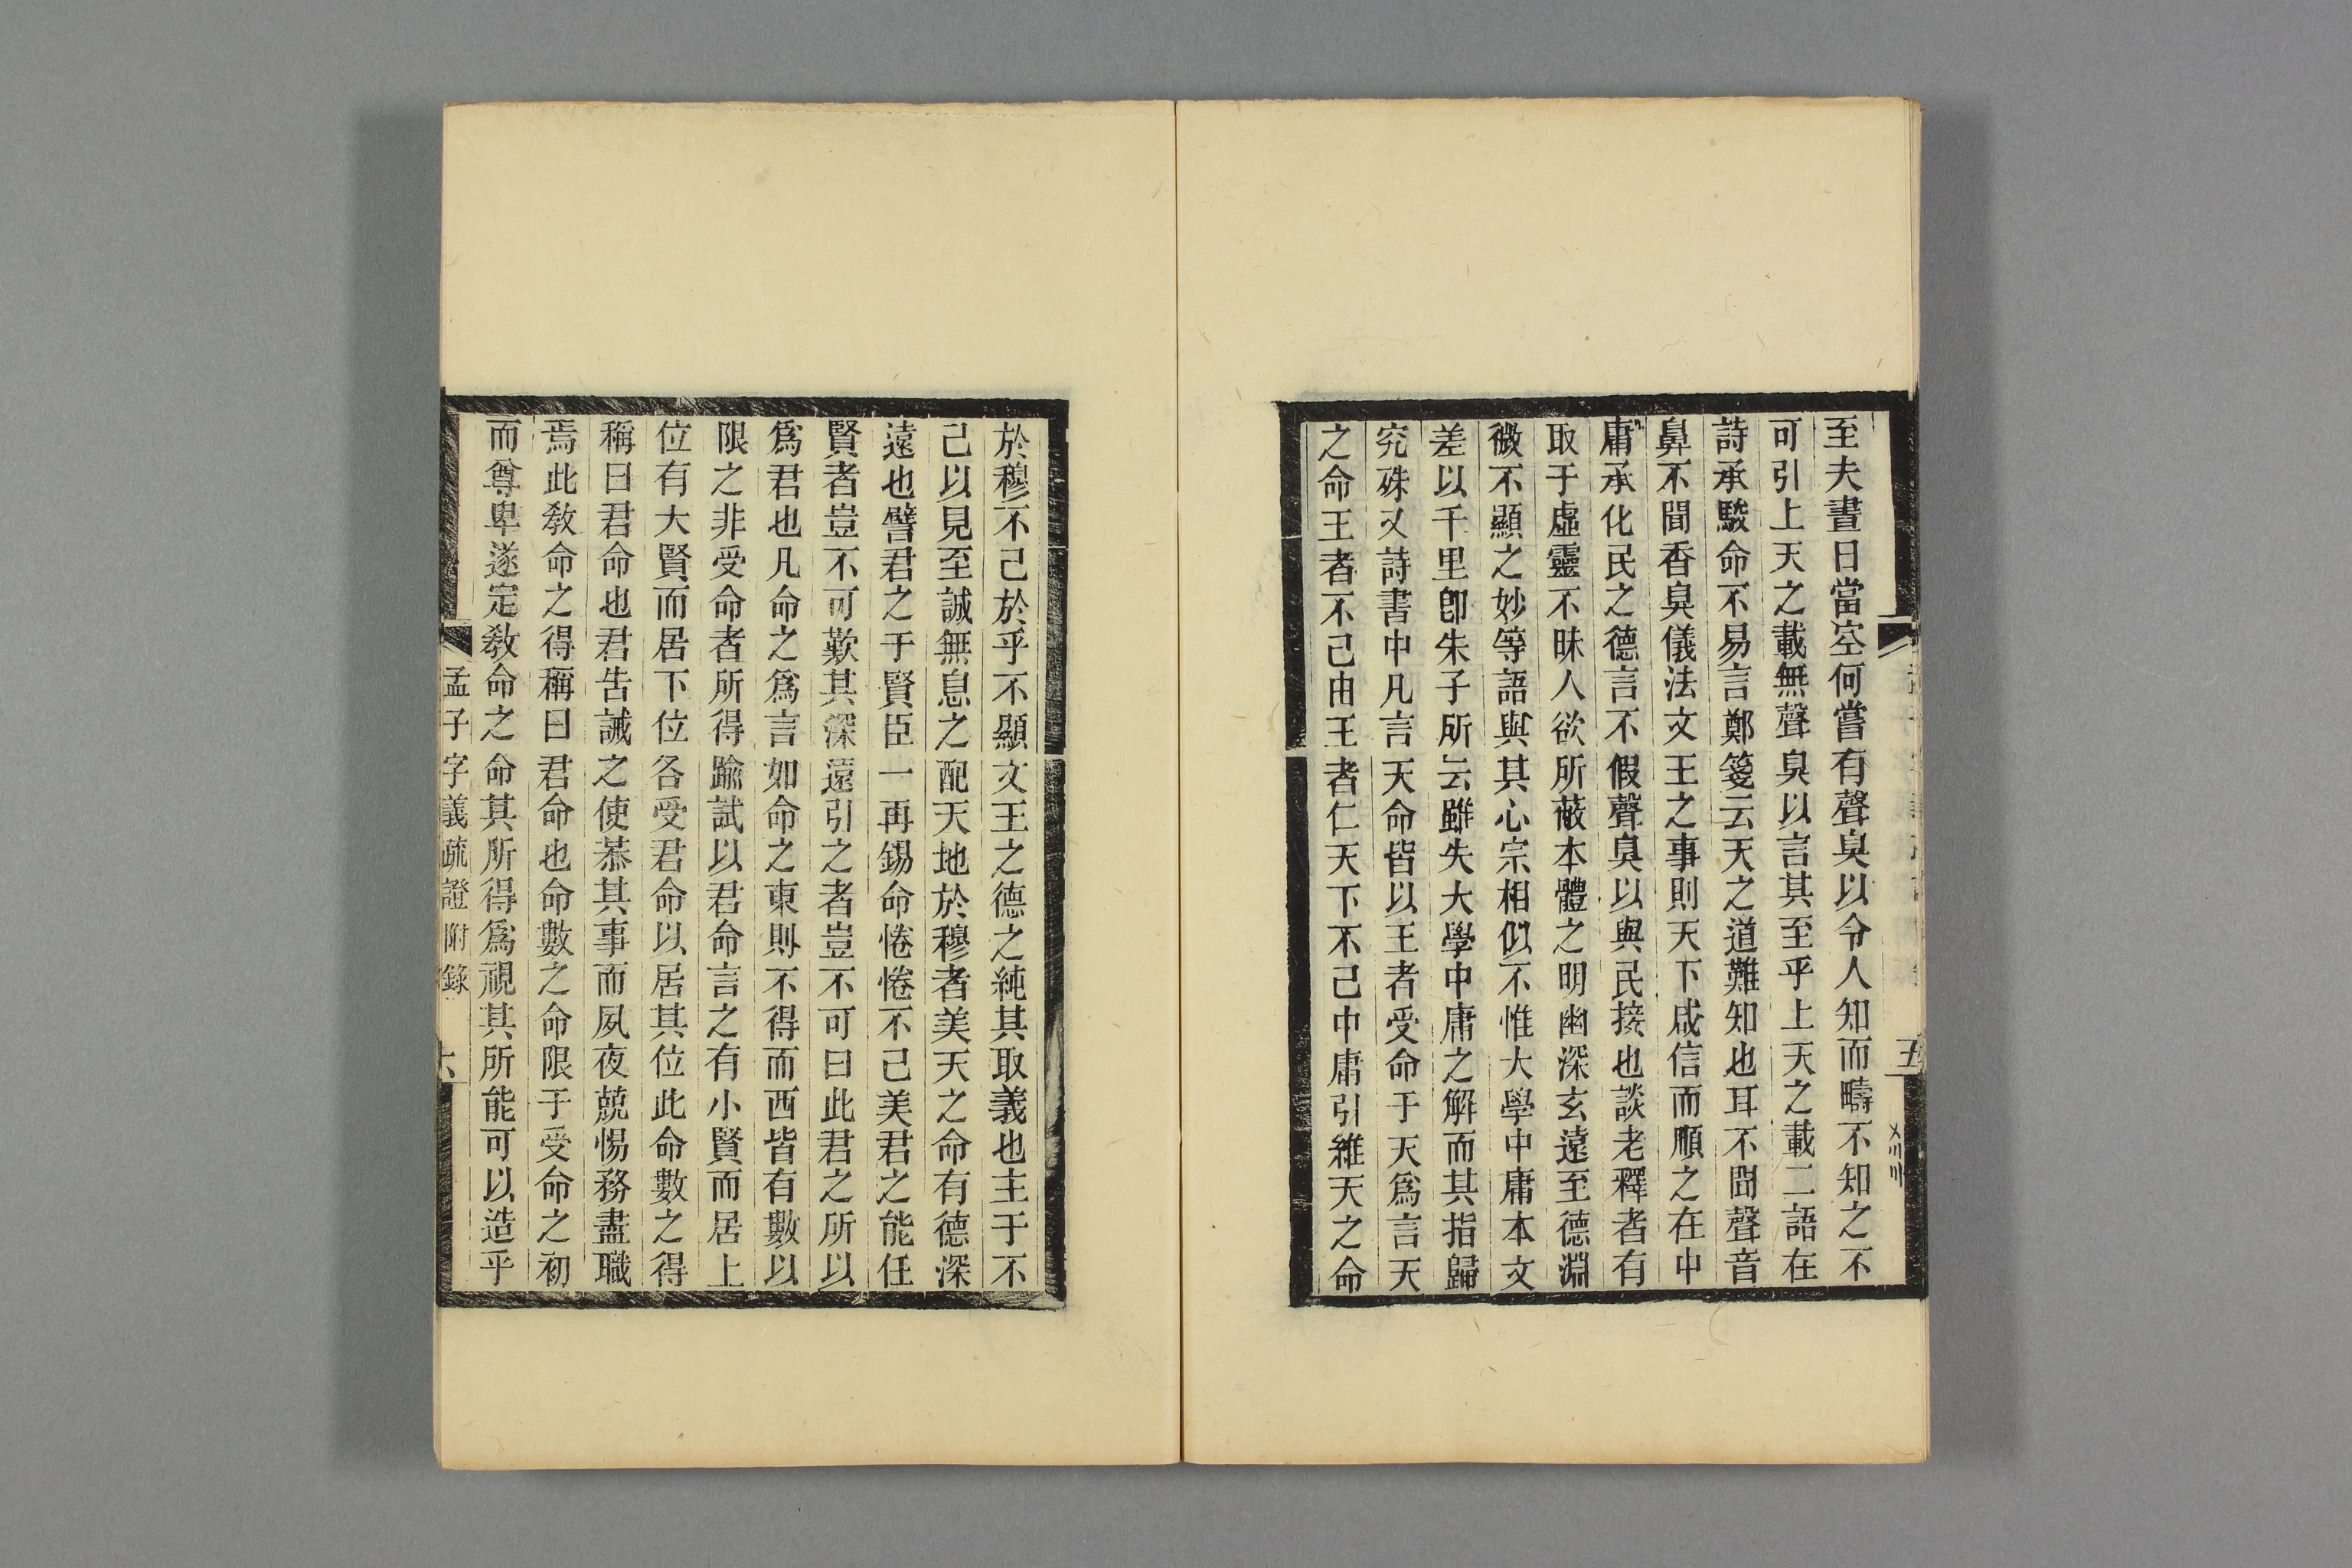 至夫晝日當空何嘗有聲臭以令人知而疇不知之不
可引上天之載無聲臭以言其至乎上天之載二語在
詩承駿命不易言鄭箋云天之道難知也耳不聞聲音
鼻不聞香臭儀法文王之事則天下咸信而順之在中
庸承化民之德言不假聲臭以與民接也談老釋者有
取于虛靈不昧人欲所蔽本體之明幽深玄遠至德淵
微不顯之妙等語與其心宗相似不惟大學中庸本文
差以千里卽朱子所云雖失大學中庸之解而其指歸
究殊又詩書中凡言天命皆以王者受命于天爲言天
之命王者不已由王者仁天下不已中庸引維天之命
五
於穆不已於乎不顯文王之德之純其取義也主于不
已以見至誠無息之配天地於穆者美天之命有德深
遠也譬君之于賢臣一再錫命惓惓不已美君之能任
賢者豈不可歎其深遠引之者豈不可曰此君之所以
爲君也凡命之爲言如命之東則不得而西皆有數以
限之非受命者所得踰試以君命言之有小賢而居上
位有大賢而居下位各受君命以居其位此命數之得
稱曰君命也君告誡之使恭其事而夙夜兢惕務盡職
焉此敎命之得稱曰君命也命數之命限于受命之初
而尊卑遂定敎命之命其所得爲視其所能可以造乎
孟子字義疏證 附錄 六